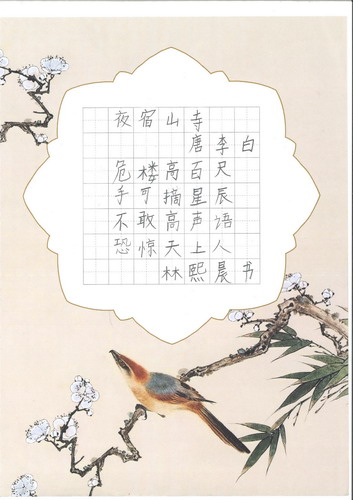 夜宿山寺
唐李白
危楼高百尺
手可摘星辰
不敢高声语
恐惊天上人
林熙晨书